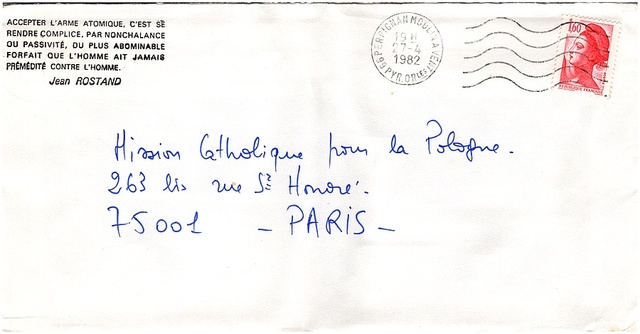 ACCEPTER L'ARME ATOMIQUE, C'EST SE
RENDRE COMPLICE, PAR NONCHALANCE
OU PASSIVITÉ, DU PLUS ABOMINABLE
FORFAIT QUE L'HOMME AIT JAMAIS
PRÉMÉDITÉ CONTRE L'HOMME.
Jean ROSTAND
66 PERPIGNAN MOULIN A VENT
19 H
27-4
1982
PYR. ORLES
1,60
REPUBLIQUE FRANÇAISE
Mission Catholique pour la Pologne.
263 bis rue St Honoré.
75001 - PARIS -